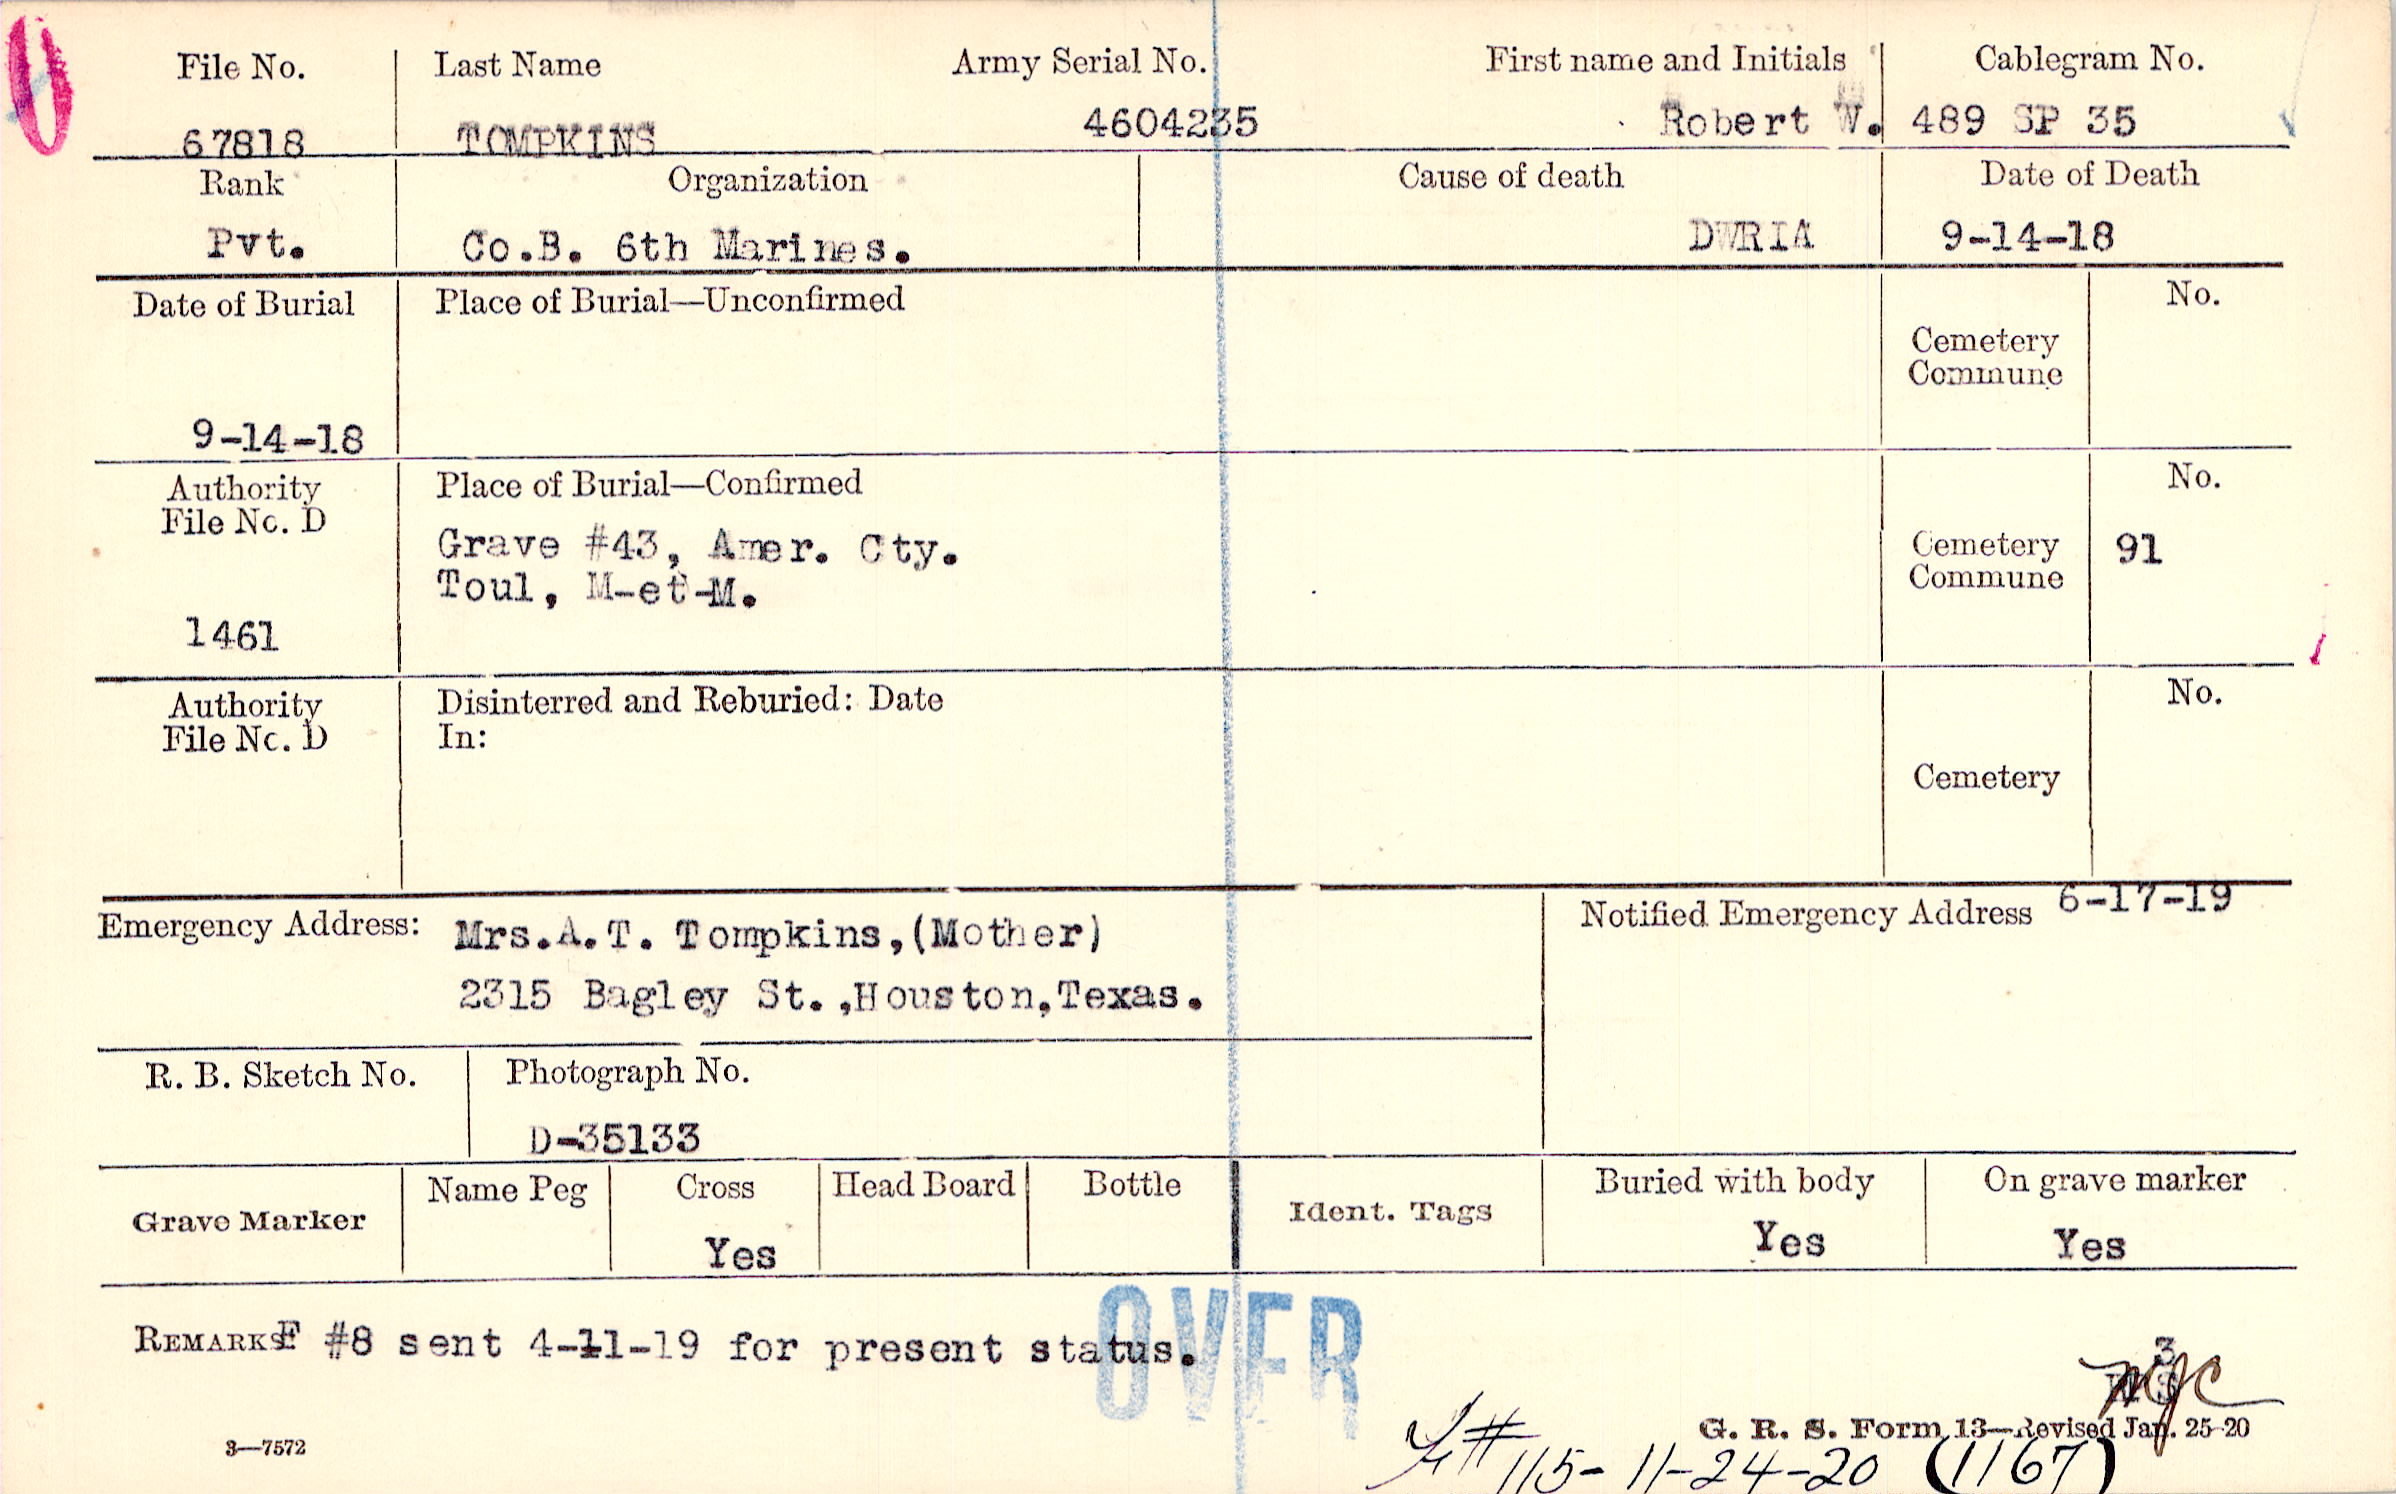 File No. Last Name Army Serial No. First name and Initials Cablegram No.
67818 TOMPKINS 4604235 Robert W. 489 SP 35
Rank Organization Cause of death Date of Death
Pvt. Co.B. 6th Marines. DWRIA 9-14-18
Date of Burial Place of Burial—Unconfirmed No.
Cemetery
Commune
9-14-18
Authority Place of Burial—Confirmed No.
File No. D
Grave #43, Amer. Cty. Cemetery 91
Toul, M-et-M. Commune
1461
Authority Disinterred and Reburied: Date No.
File No. D In:
Cemetery
Emergency Address: Mrs.A.T. Tompkins,(Mother) Notified Emergency Address 6-17-19
2315 Bagley St.,Houston,Texas.
R. B. Sketch No. Photograph No.
D-35133
Grave Marker Name Peg Cross Head Board Bottle Ident. Tags Buried with body On grave marker
Yes Yes Yes
REMARKS F #8 sent 4-11-19 for present status.
OVER
3
G. R. S. Form 13—Revised Jan. 25-20
3—7572
115- 11-24-20 (1167)